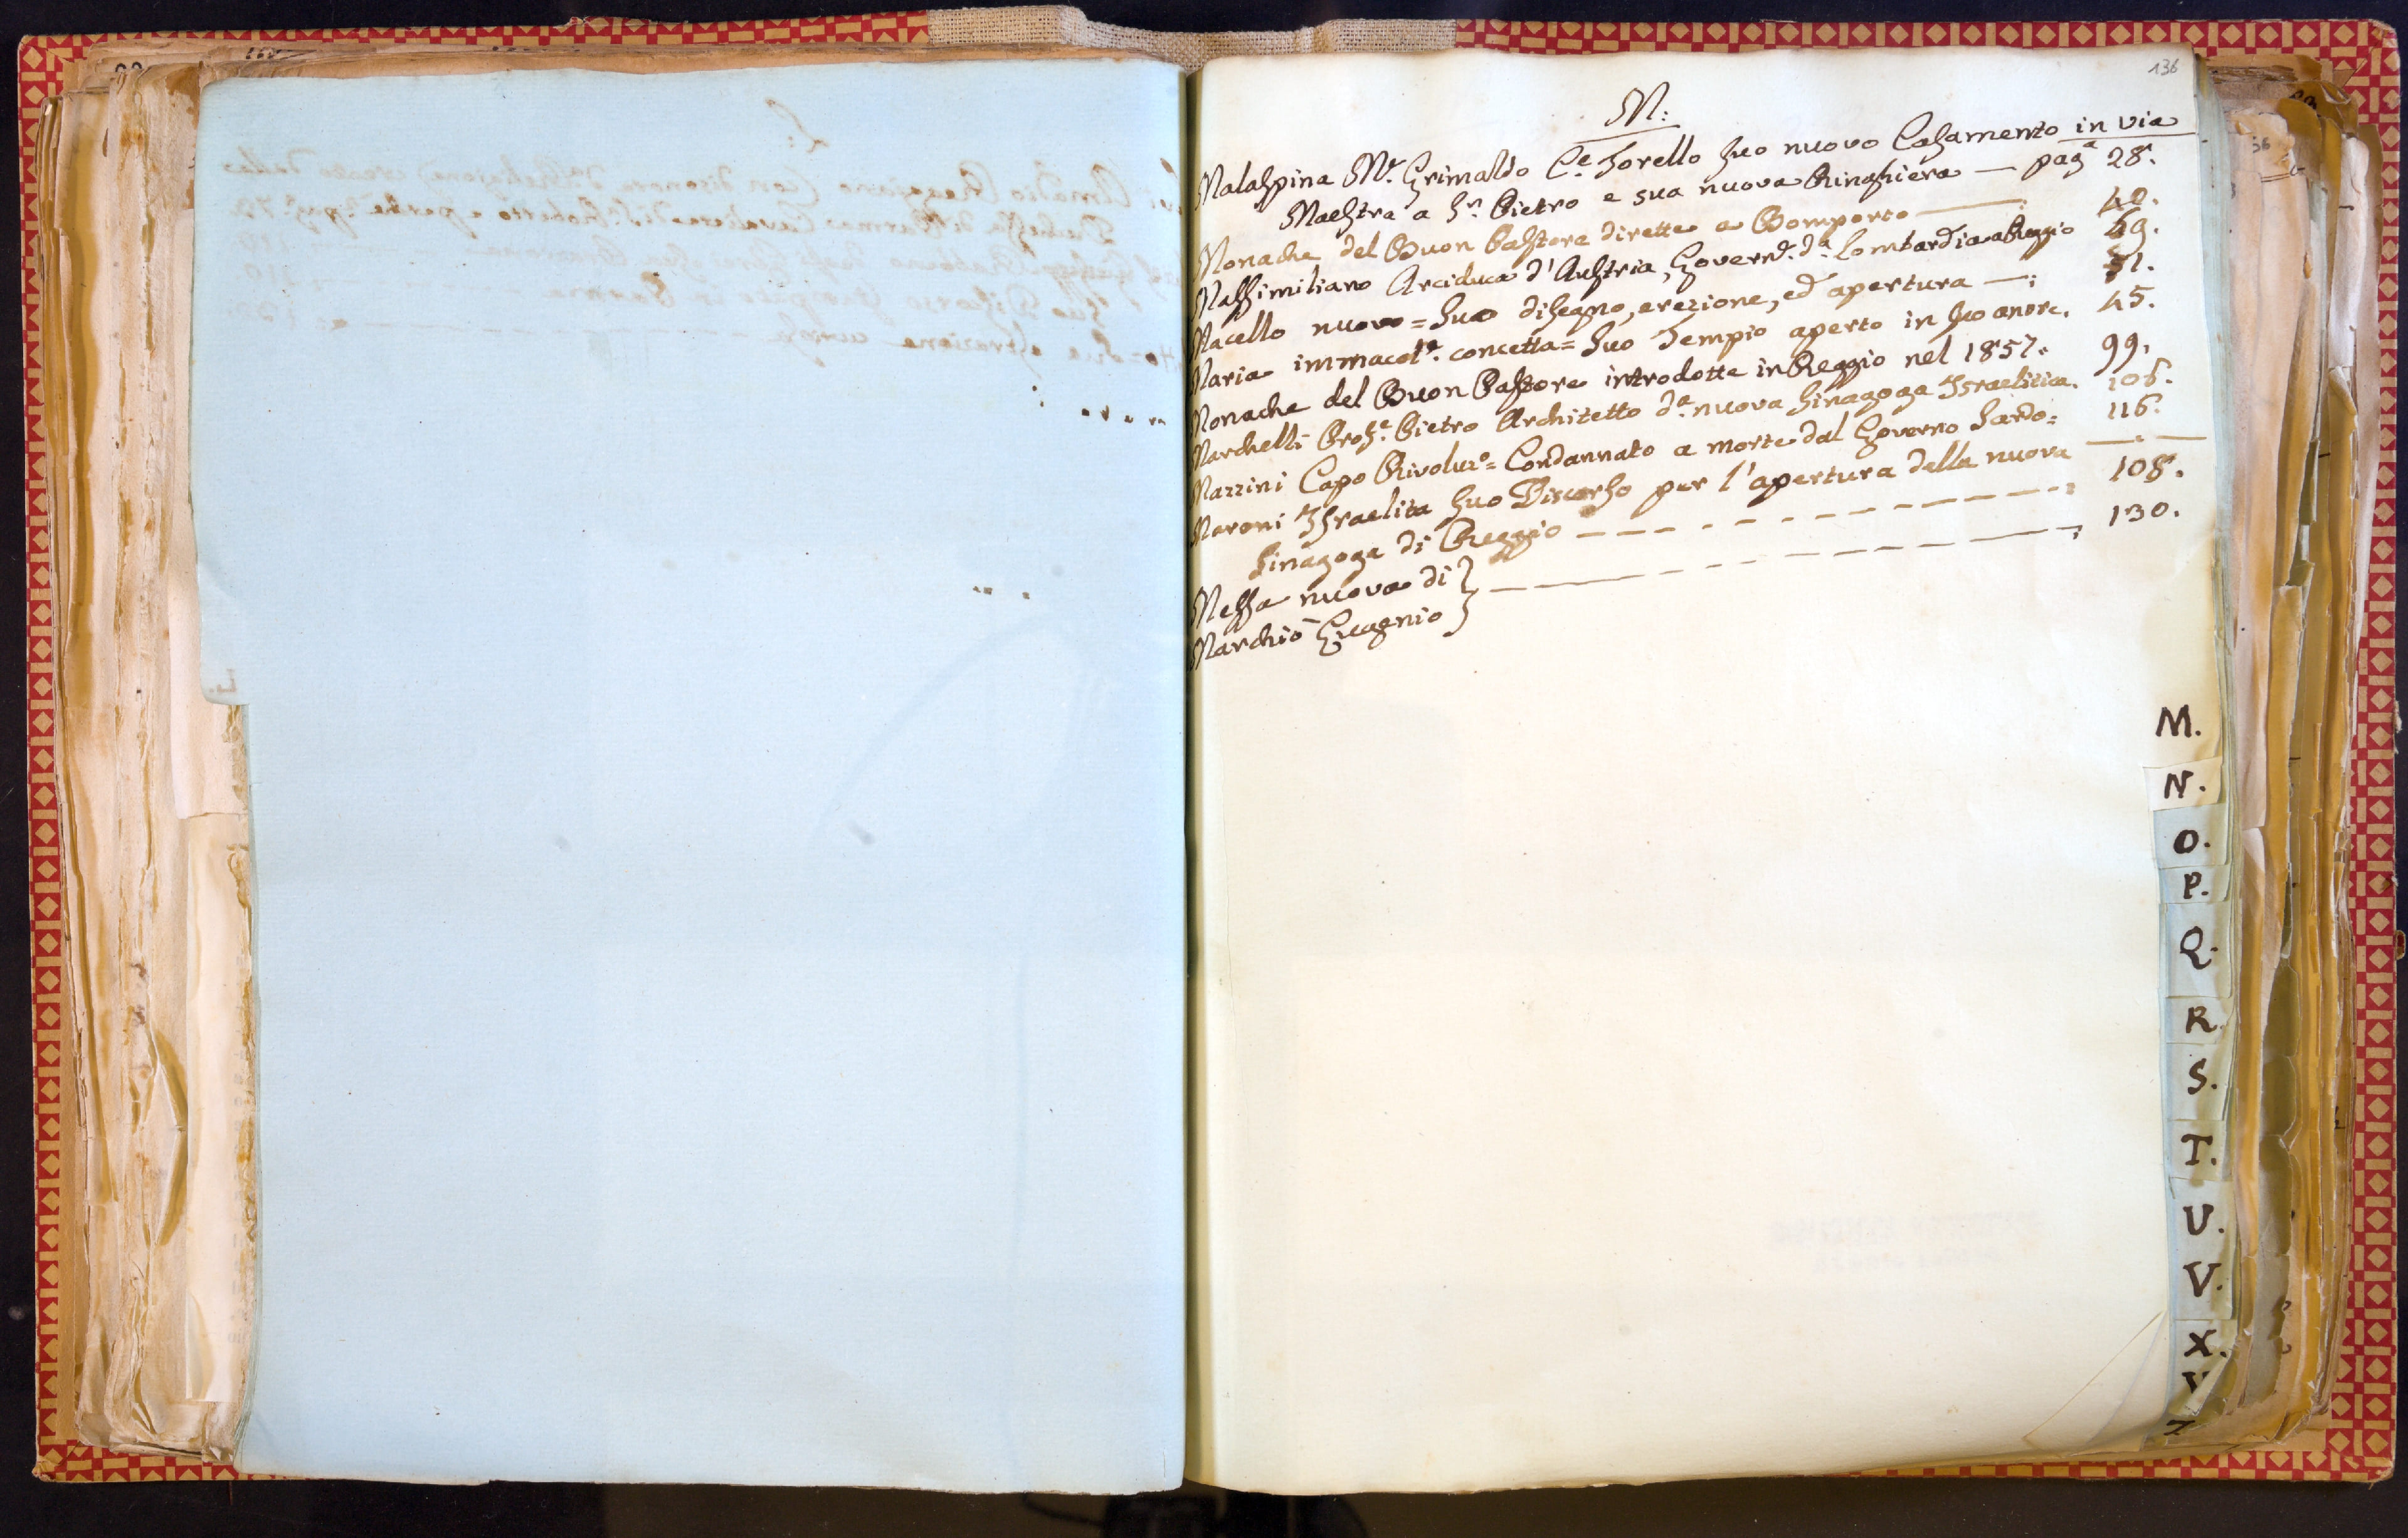 136
M:
Malaspina Mse. Grimaldo Ce. Torello suo nuovo Casamento in via
Maestra a Sn. Pietro e sua nuova Ringhiera — paga 28.
Monache del Buon Pastore dirette a Bomporto — : 40.
Massimiliano Arciduca d'Austria, Governe. da. Lombardia a Reggio 49.
Macello nuovo = suo disegno, erezione, ed apertura — ; 51.
Maria immacolta. concetta = suo Tempio aperto in suo onore. 45.
Monache del Buon Pastore introdotte in Reggio nel 1857. 99.
Marchelli Profe. Pietro Architetto da. nuova Sinagoga Israelitica. 106.
Mazzini Capo Rivoluzo = Condannato a morte dal Governo Sardo = 116.
Maroni Israelita suo Discorso per l'apertura della nuova
Sinagoga di Reggio — — — — — : 108.
Messa nuova di } — — — — — ; 130.
Marchiò Eugenio
M.
N.
O.
P.
Q.
R.
S.
T.
U.
V.
X.